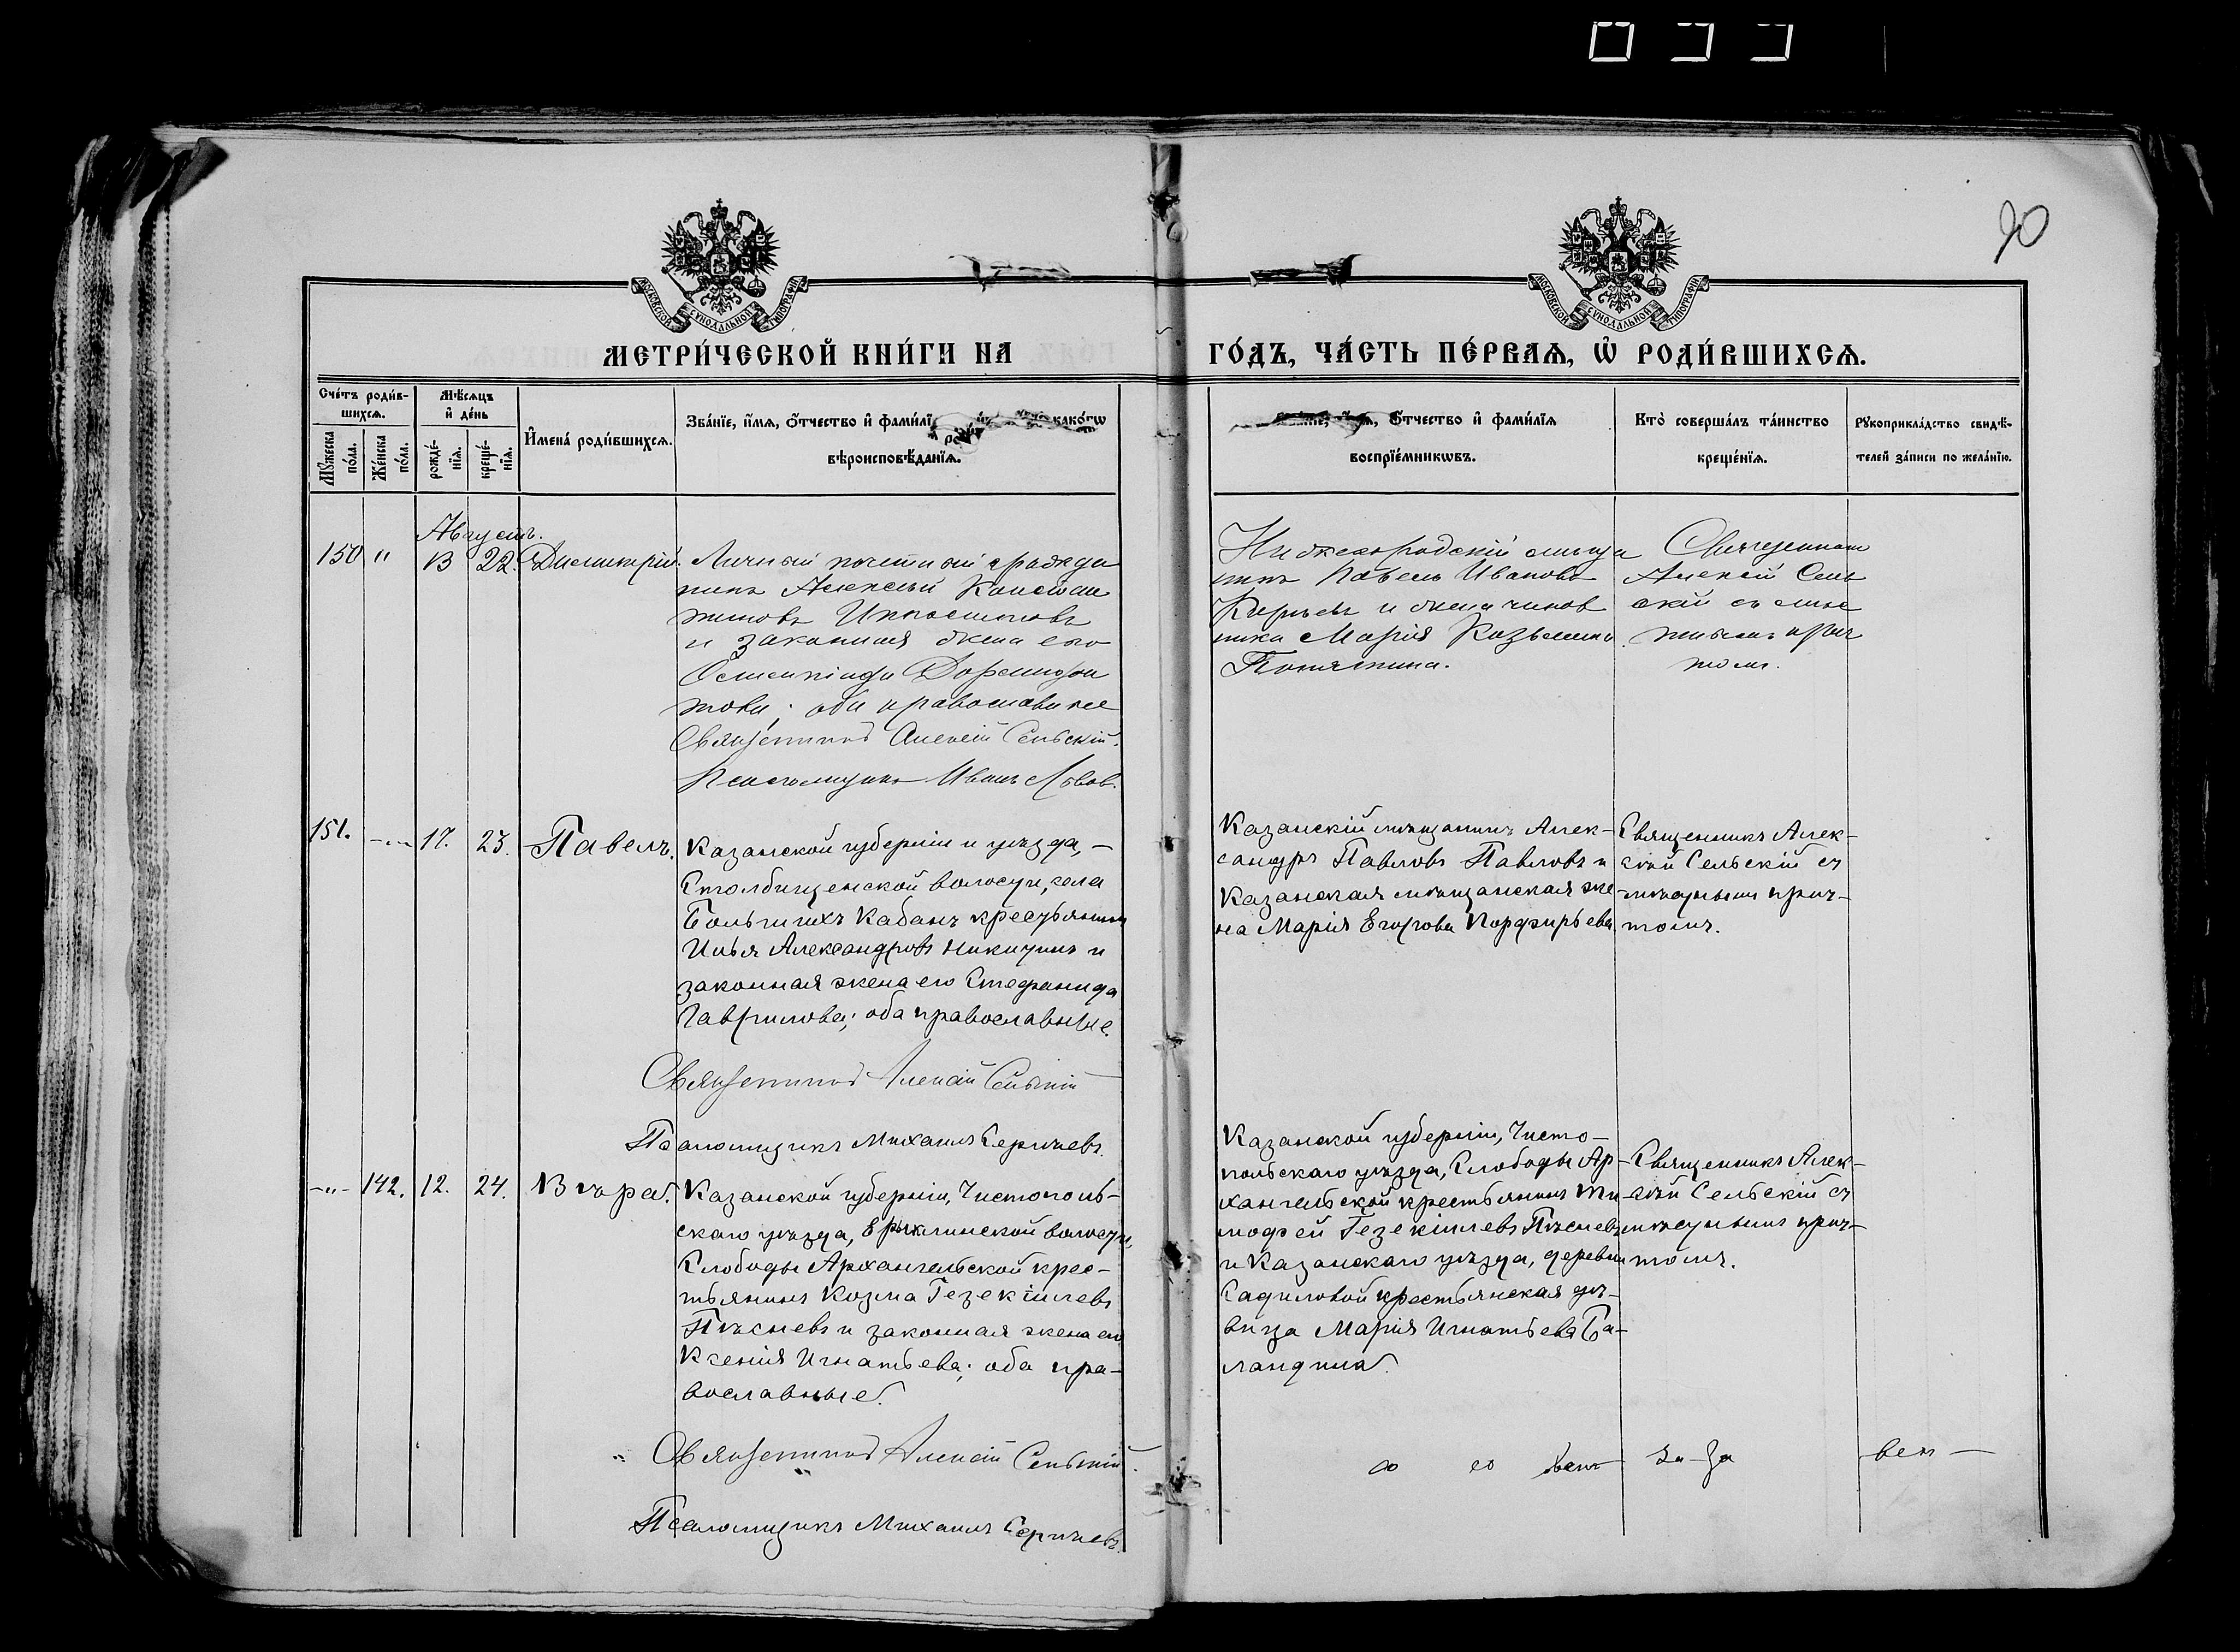 90
МОСКОВСКОЙ СУНОДАЛЬНОЙ ТИПОГРАФІИ
МОСКОВСКОЙ СУНОДАЛЬНОЙ ТИПОГРАФІИ
МЕТРИ́ЧЕСКОЙ КНИ́ГИ НА
ГО́ДЪ, ЧА́СТЬ ПЕ́РВАЯ, Ѽ РОДИ́ВШИХСЯ.
Сче́тъ роди́в-
шихся.
Мꙋ́жеска по́ла.
Же́нска по́ла.
Мѣ́сяцъ
и҆ де́нь
рожде́-
нїя.
креще́-
нїя.
И҆мена̀ роди́вшихся.
Зва́нїе, и҆́мя, ѻ҆́тчество и҆ фами́лї како́гѡ
вѣроисповѣ́данїя.
ѻ҆́тчество и҆ фами́лїя
воспрїе́мникѡвъ.
Кто̀ соверша́лъ та́инство
креще́нїя.
Рꙋкоприкла́дство свидѣ́-
телей за́писи по жела́нїю.
Августъ.
150 " 13 22. Димитрій.
Личный почетный гражда
нинъ Алексѣй Констан
тиновъ
и законная жена его
; оба православные
Священникъ Алексій Сельскій.
Псаломщикъ Иванъ Львов.
Нижегородскій мѣща
нинъ Павелъ Ивановъ
и жена чинов
ника Марія Козьмина
Священникъ
Алексій Сель
скій съ мѣс
тнымъ прич
томъ.
151. -"- 17. 23. Павелъ.
Казанской губерніи и уѣзда, —
Столбищенской волости, села
Большихъ Кабанъ крестьянинъ
Илья Александровъ Никитинъ и
законная жена его Стефанида
Гаврилова; оба православные.
Священникъ Алексій Сельскій
Псаломщикъ Михаилъ Сергѣевъ.
Казанскій мѣщанинъ Алек-
сандръ Павловъ Павловъ и
Казанская мѣщанская же
на Марія Егорова Порфирьева
Священникъ Алек-
сѣй Сельскій съ
мѣстнымъ прич-
томъ.
-"- 142. 12. 24. Вѣра.
Казанской губерніи, Чистополь-
скаго уѣзда, Ерыклинской волости,
Слободы Архангельской крес-
тьянинъ Козма Іезекіилевъ
Пѣсневъ и законная жена его
Ксенія Игнатьева; оба пра-
вославные.
Священникъ Алексій Сельскій
Псаломщикъ Михаилъ Сергѣевъ
Казанской губерніи, Чисто-
польскаго уѣзда, Слободы Ар-
хангельской крестьянинъ Ти
мофей Іезекіилевъ Пѣсневъ
и Казанскаго уѣзда, деревни
Садиловой крестьянская дѣ-
вица Марія Игнатьева Ба-
ландина.
Священникъ Алек-
сѣй Сельскій съ
мѣстнымъ прич-
томъ.